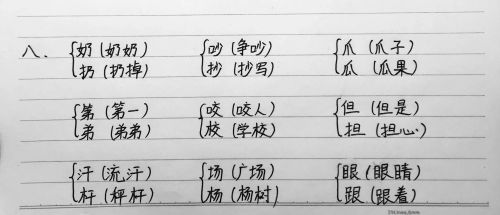 八、 奶(奶奶) 吵(争吵) 爪(爪子)
扔(扔掉) 抄(抄写) 瓜(瓜果)
第(第一) 咬(咬人) 但(但是)
弟(弟弟) 校(学校) 担(担心)
汗(流汗) 场(广场) 眼(眼睛)
杆(秤杆) 杨(杨树) 跟(跟着)